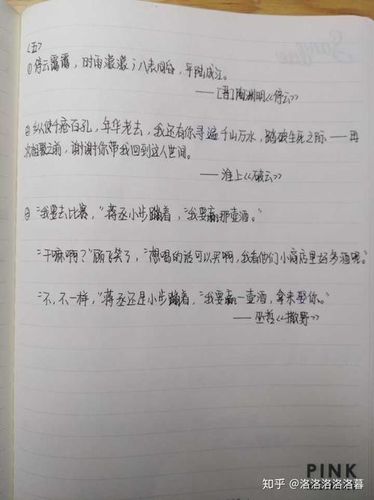 <五>
①停云霭霭，时雨濛濛；八表同昏，平陆成江。
——[晋]陶渊明<<停云>>
②纵使千疮百孔，年华老去，我还有你寻遍千山万水，踏破生死之际——再
次相聚之前，谢谢你带我回到这人世间。
——淮上<<破云>>
③"我要去比赛，"蒋丞小步蹦着，"我要赢那壶酒。"
"干嘛啊？"顾飞笑了，"想喝的话可以买啊，我看他们小商店里好多酒呢。"
"不，不一样，"蒋丞还是小步蹦着，"我要赢一壶酒，拿来娶你。"
——巫哲<<撒野>>
PINK
知乎 @洛洛洛洛洛暮